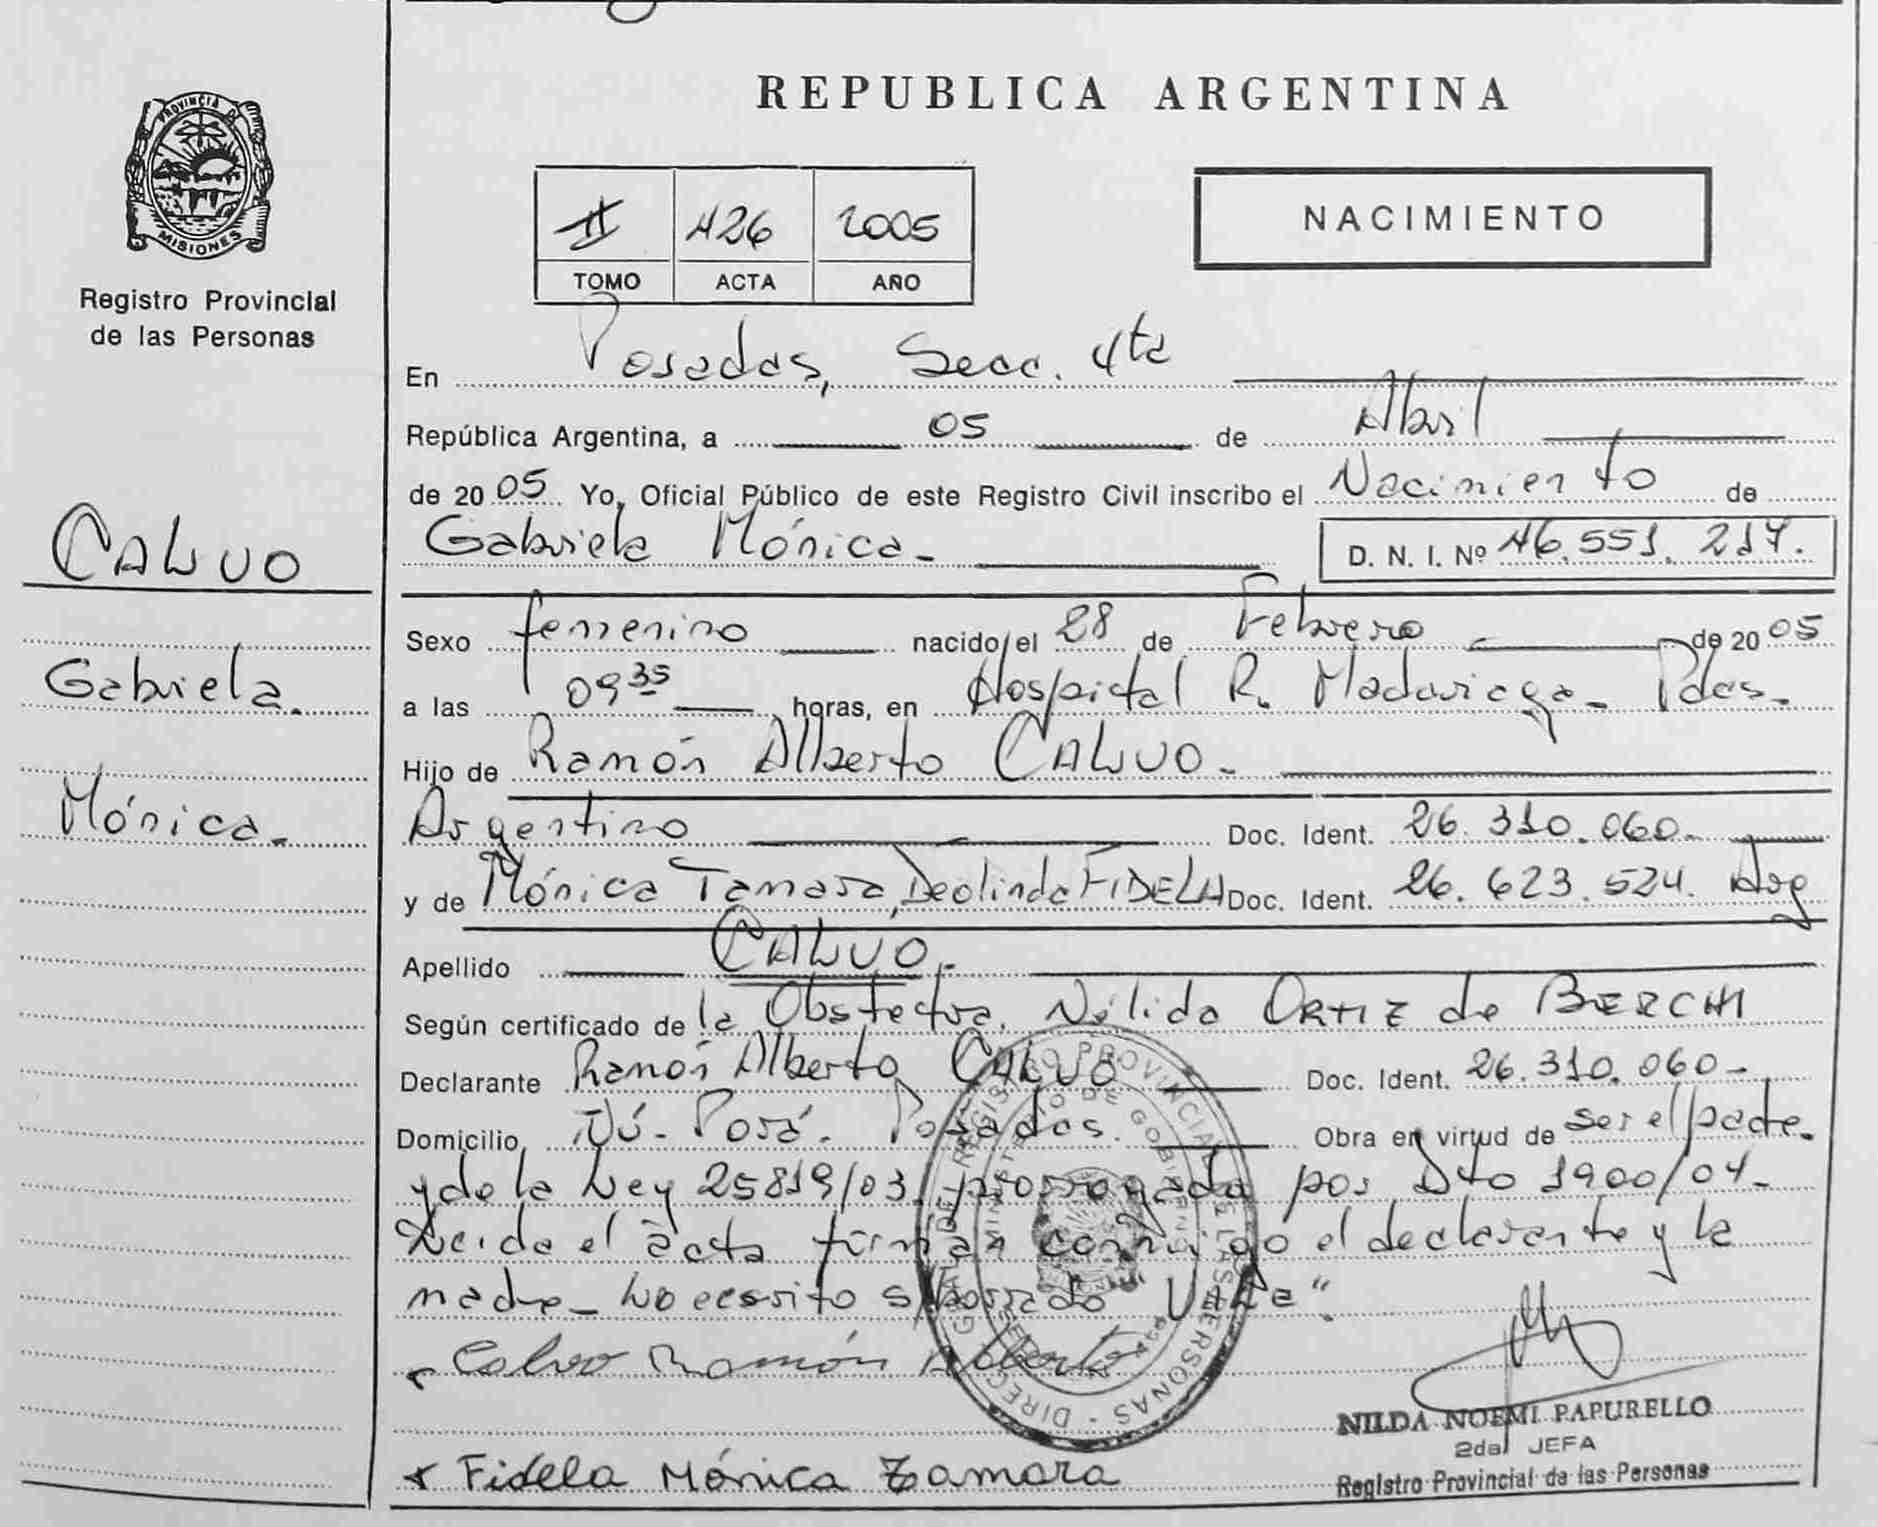 REPUBLICA ARGENTINA
PROVINCIA DE MISIONES
Registro Provincial
de las Personas
II 426 2005
TOMO ACTA AÑO
NACIMIENTO
En Posadas, Secc. 4ta
República Argentina, a 05 de Abril
de 2005 Yo, Oficial Público de este Registro Civil inscribo el Nacimiento de
Gabriela Mónica - D. N. I. Nº 46.551.217.
CALVO
Gabriela
Mónica.-
Sexo femenino nacido el 28 de Febrero de 2005
a las 09 35 horas, en Hospital R. Madariaga - Pdas.
Hijo de Ramón Alberto CALVO -
Argentino Doc. Ident. 26.310.060 -
y de Mónica Tamara, Deolinda FIDELA Doc. Ident. 26.623.524. Arg
Apellido CALVO -
Según certificado de la Obstetra. Nélida ORTIZ de BERCHI
Declarante Ramón Alberto CALVO Doc. Ident. 26.310.060 -
Domicilio Posadas. Obra en virtud de ser el padre
y de la Ley 25819/03, prorrogada por Dto 1900/04 -
Leída el acta firman conmigo el declarante y la
madre - s/borrado "Vale".
Calvo Ramón Alberto
NILDA NOEMI PAPURELLO
2da JEFA
Registro Provincial de las Personas
x Fidela Mónica Tamara
DIRECC GRAL DE REGISTRO PROVINCIAL DE LAS PERSONAS
MINISTERIO DE GOBIERNO